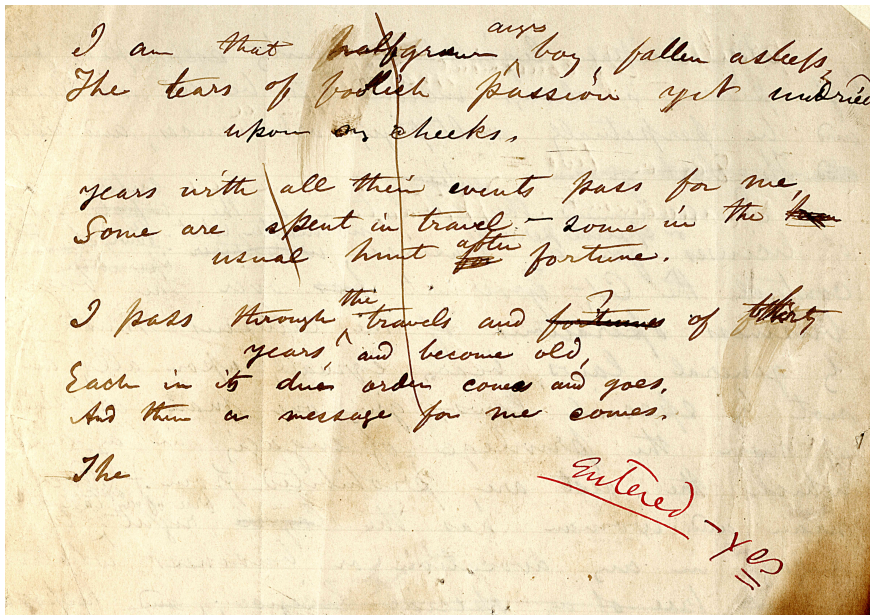 I am that halfgrown angry boy, fallen asleep,
The tears of foolish passion yet undried
upon my cheeks.
years with all their events pass for me,
Some are spent in travel – some in the
usual hunt after for fortune.
I pass through the travels and fortunes ? of thirty
years, and become old,
Each in its due order comes and goes,
And then a message for me comes.
The
Entered – Yes